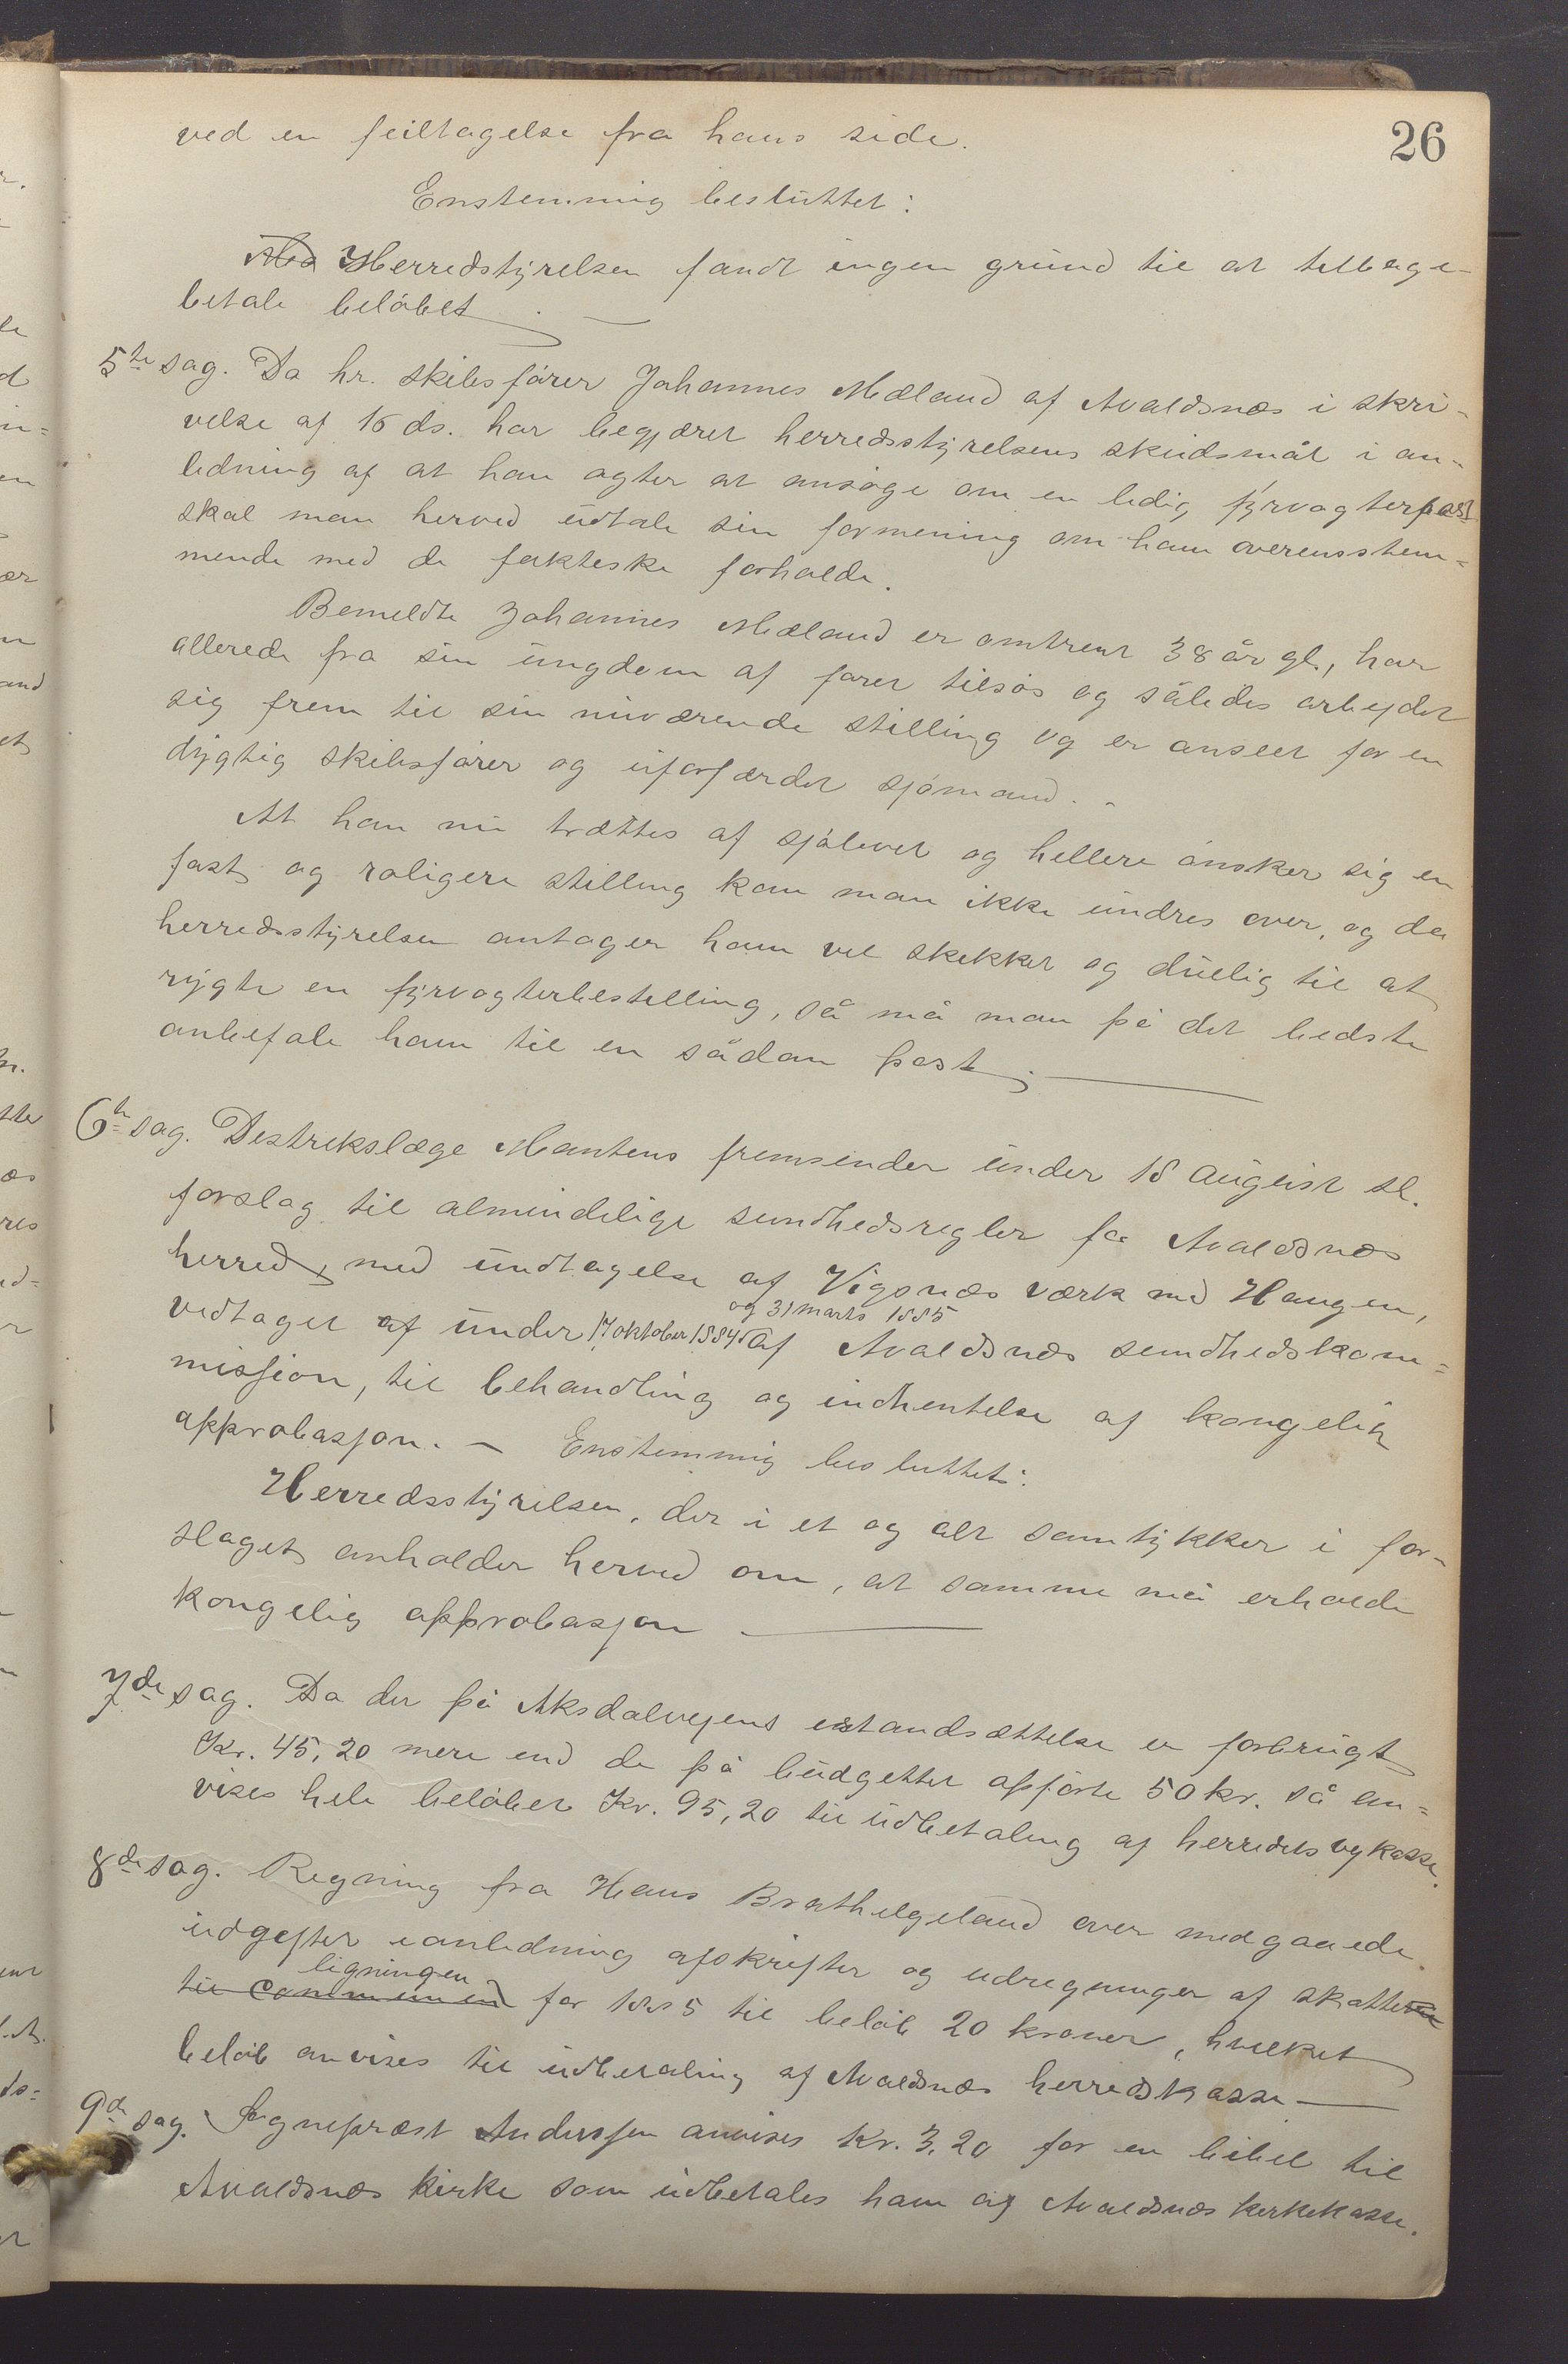 26
ved en feiltagelse fra hans side.
Enstemmig besluttet:
Herredstyrelsen fandt ingen grund til at tilbage-
betale beløbet. —
5te sag. Da hr. skibsfører Johannes Mæland af Avaldsnæs i skri-
velse af 16 ds. har begjæret herredsstyrelsens skudsmål i an-
ledning af at han agter at ansøge om en ledig fyrvagterpost
skal man herved udtale sin formening om ham overensstem-
mende med de faktiske forholde.
Bemeldte Johannes Mæland er omtrent 38 år gl., har
allerede fra sin ungdom af faret tilsøs og således arbejdet
sig frem til sin nuværende stilling og er anseet for en
dygtig skibsfører og uforfærdet sjømand. -
At han nu trættes af sjølivet og hellere ønsker sig en
fast og roligere stilling kan man ikke undres over, og da
herredsstyrelsen antager ham vel skikket og duelig til at
rygte en fyrvagterbestilling, så må man på det bedste
anbefale ham til en sådan post. —
6te sag. Distriktslæge Mantens fremsender under 18 august sl.
forslag til almindelige sundhedsregler for Avaldsnæs
herred, med undtagelse af Vigsnæs værk med Haugen,
og 31 marts 1885
vedtaget af under 17 oktober 1884 af Avaldsnæs sundhedskom=
mission, til behandling og indhentelse af kongelig
approbasjon. — Enstemmig besluttet:
Herredsstyrelsen, der i et og alt samtykker i for-
slaget anholder herved om, at samme må erholde
kongelig approbasjon —
7de sag. Da der på Aksdalvejens istandsættelse er forbrugt
Kr. 45,20 mere end de på budgettet opførte 50 kr. så an=
vises hele beløbet Kr. 95,20 til udbetaling af herredets vejkasse.
8de sag. Regning fra Hans Brathelgeland over medgaaede
udgifter ianledning afskrifter og udregninger af skatte
ligningen
til communen for 1885 til beløb 20 kroner, hvilket
beløb anvises til udbetaling af Avaldsnæs herredskasse —
9de sag. Sognepræst Anderssen anvises Kr. 3,20 for en bibel til
Avaldsnæs kirke som udbetales ham af Avaldsnæs kirkekasse.